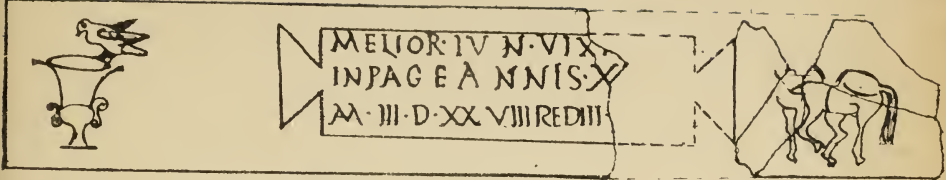 MELIOR·IVN·VIX·
INPAGE ANNIS·X
M·III·D·XXVIIIREDIII